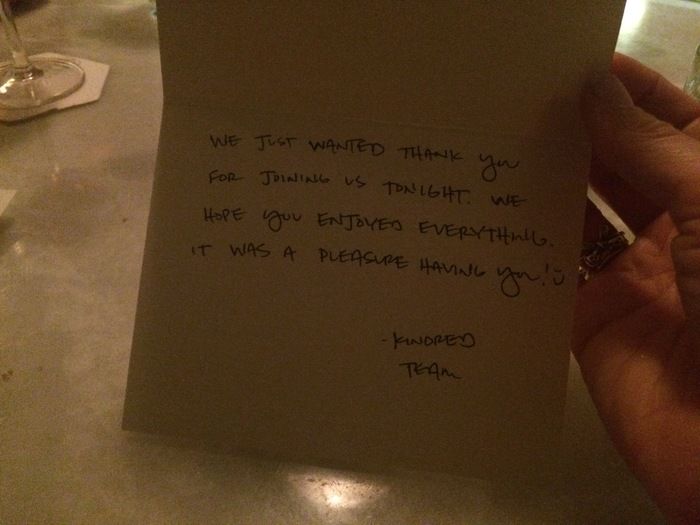 WE JUST WANTED THANK you
FOR JOINING US TONIGHT. WE
HOPE you ENJOYED EVERYTHING.
IT WAS A PLEASURE HAVING you! :)
-KINDRED
TEAM